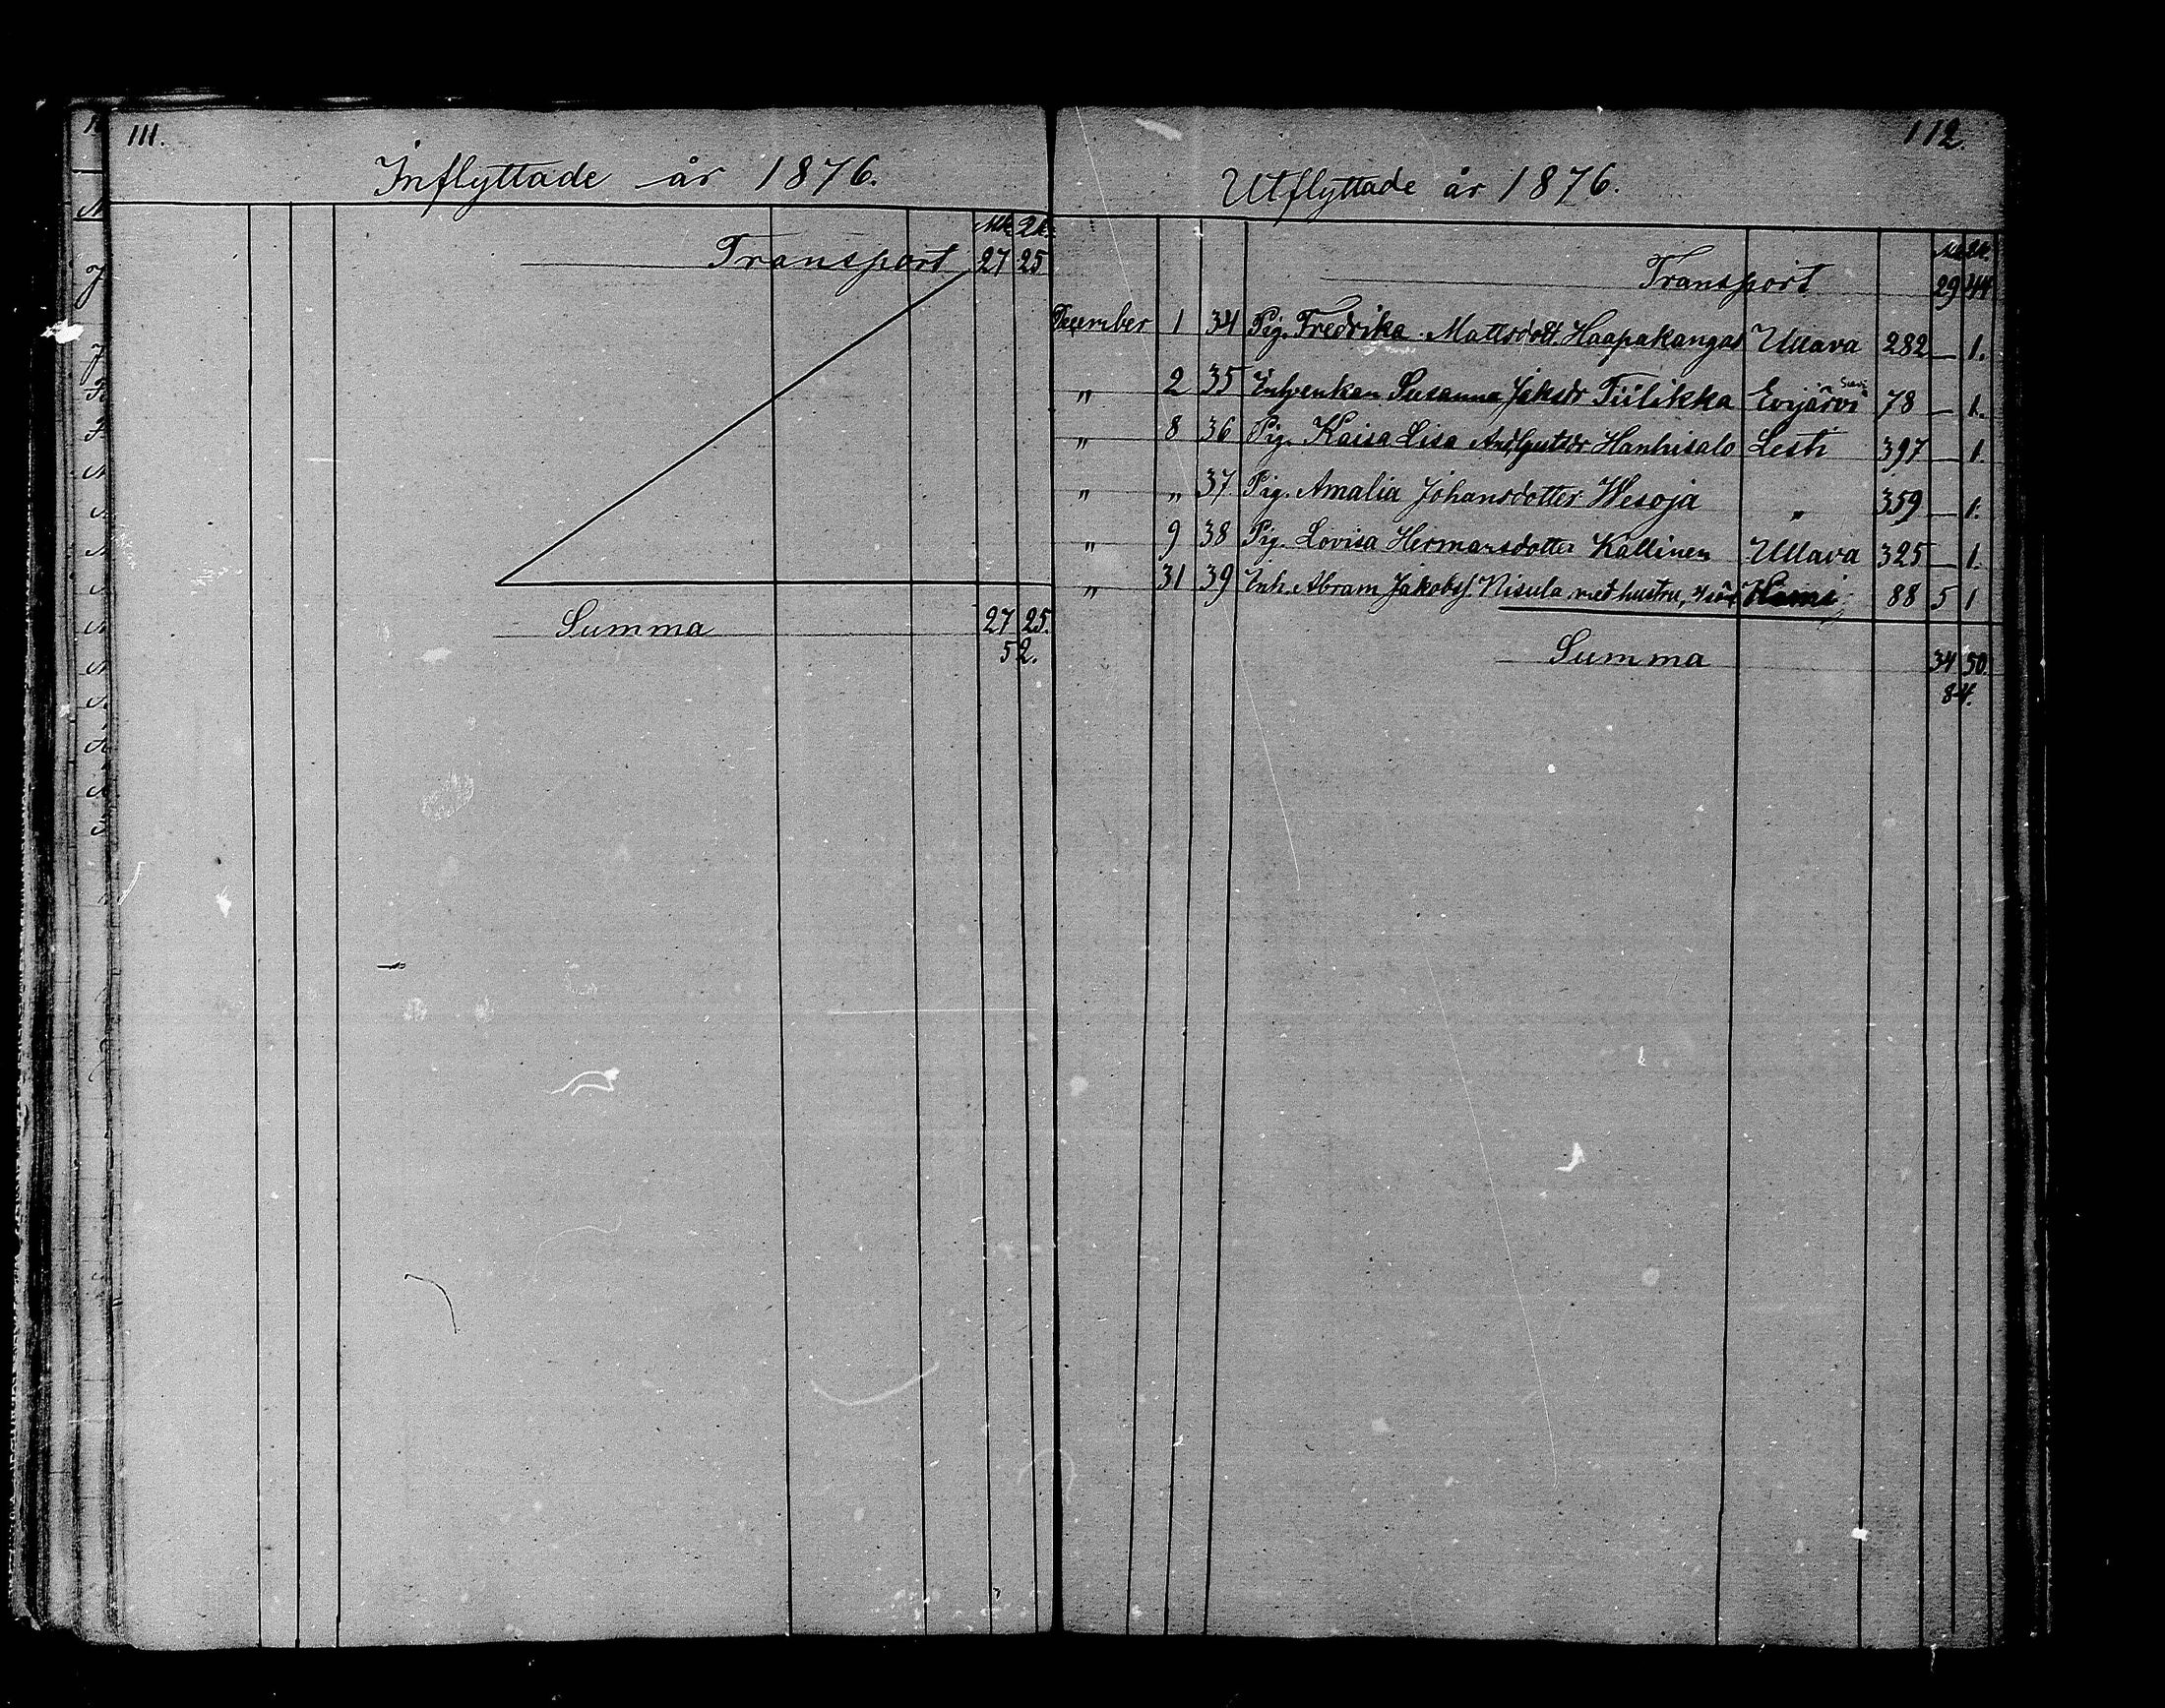 111.
Inflyttade år 1876.
Mk. Qk.
Transport 27 25
Summa 27 25.
52.
112.
Utflyttade år 1876.
Mk. Qk.
Transport 29 44
December 1 34 Pig. Fredrika Mattsdott. Haapakangas Ullava 282 — 1.
" 2 35 Enkan Susanna Jaksdr Tiilikka Evijärvi 78 — 1.
" 8 36 Pig. Kaisa Lisa And. Gustdr Hanhisalo Lesti 397 — 1.
" " 37. Pig. Amalia Johansdotter Wesoja " 359 — 1.
" 9 38 Pig. Lovisa Hermansdotter Kallinen Ullava 325 — 1.
" 31 39 Inh. Abram Jakobss. Nisula med hustru, 4 88 5 1
Summa 34 50.
84.